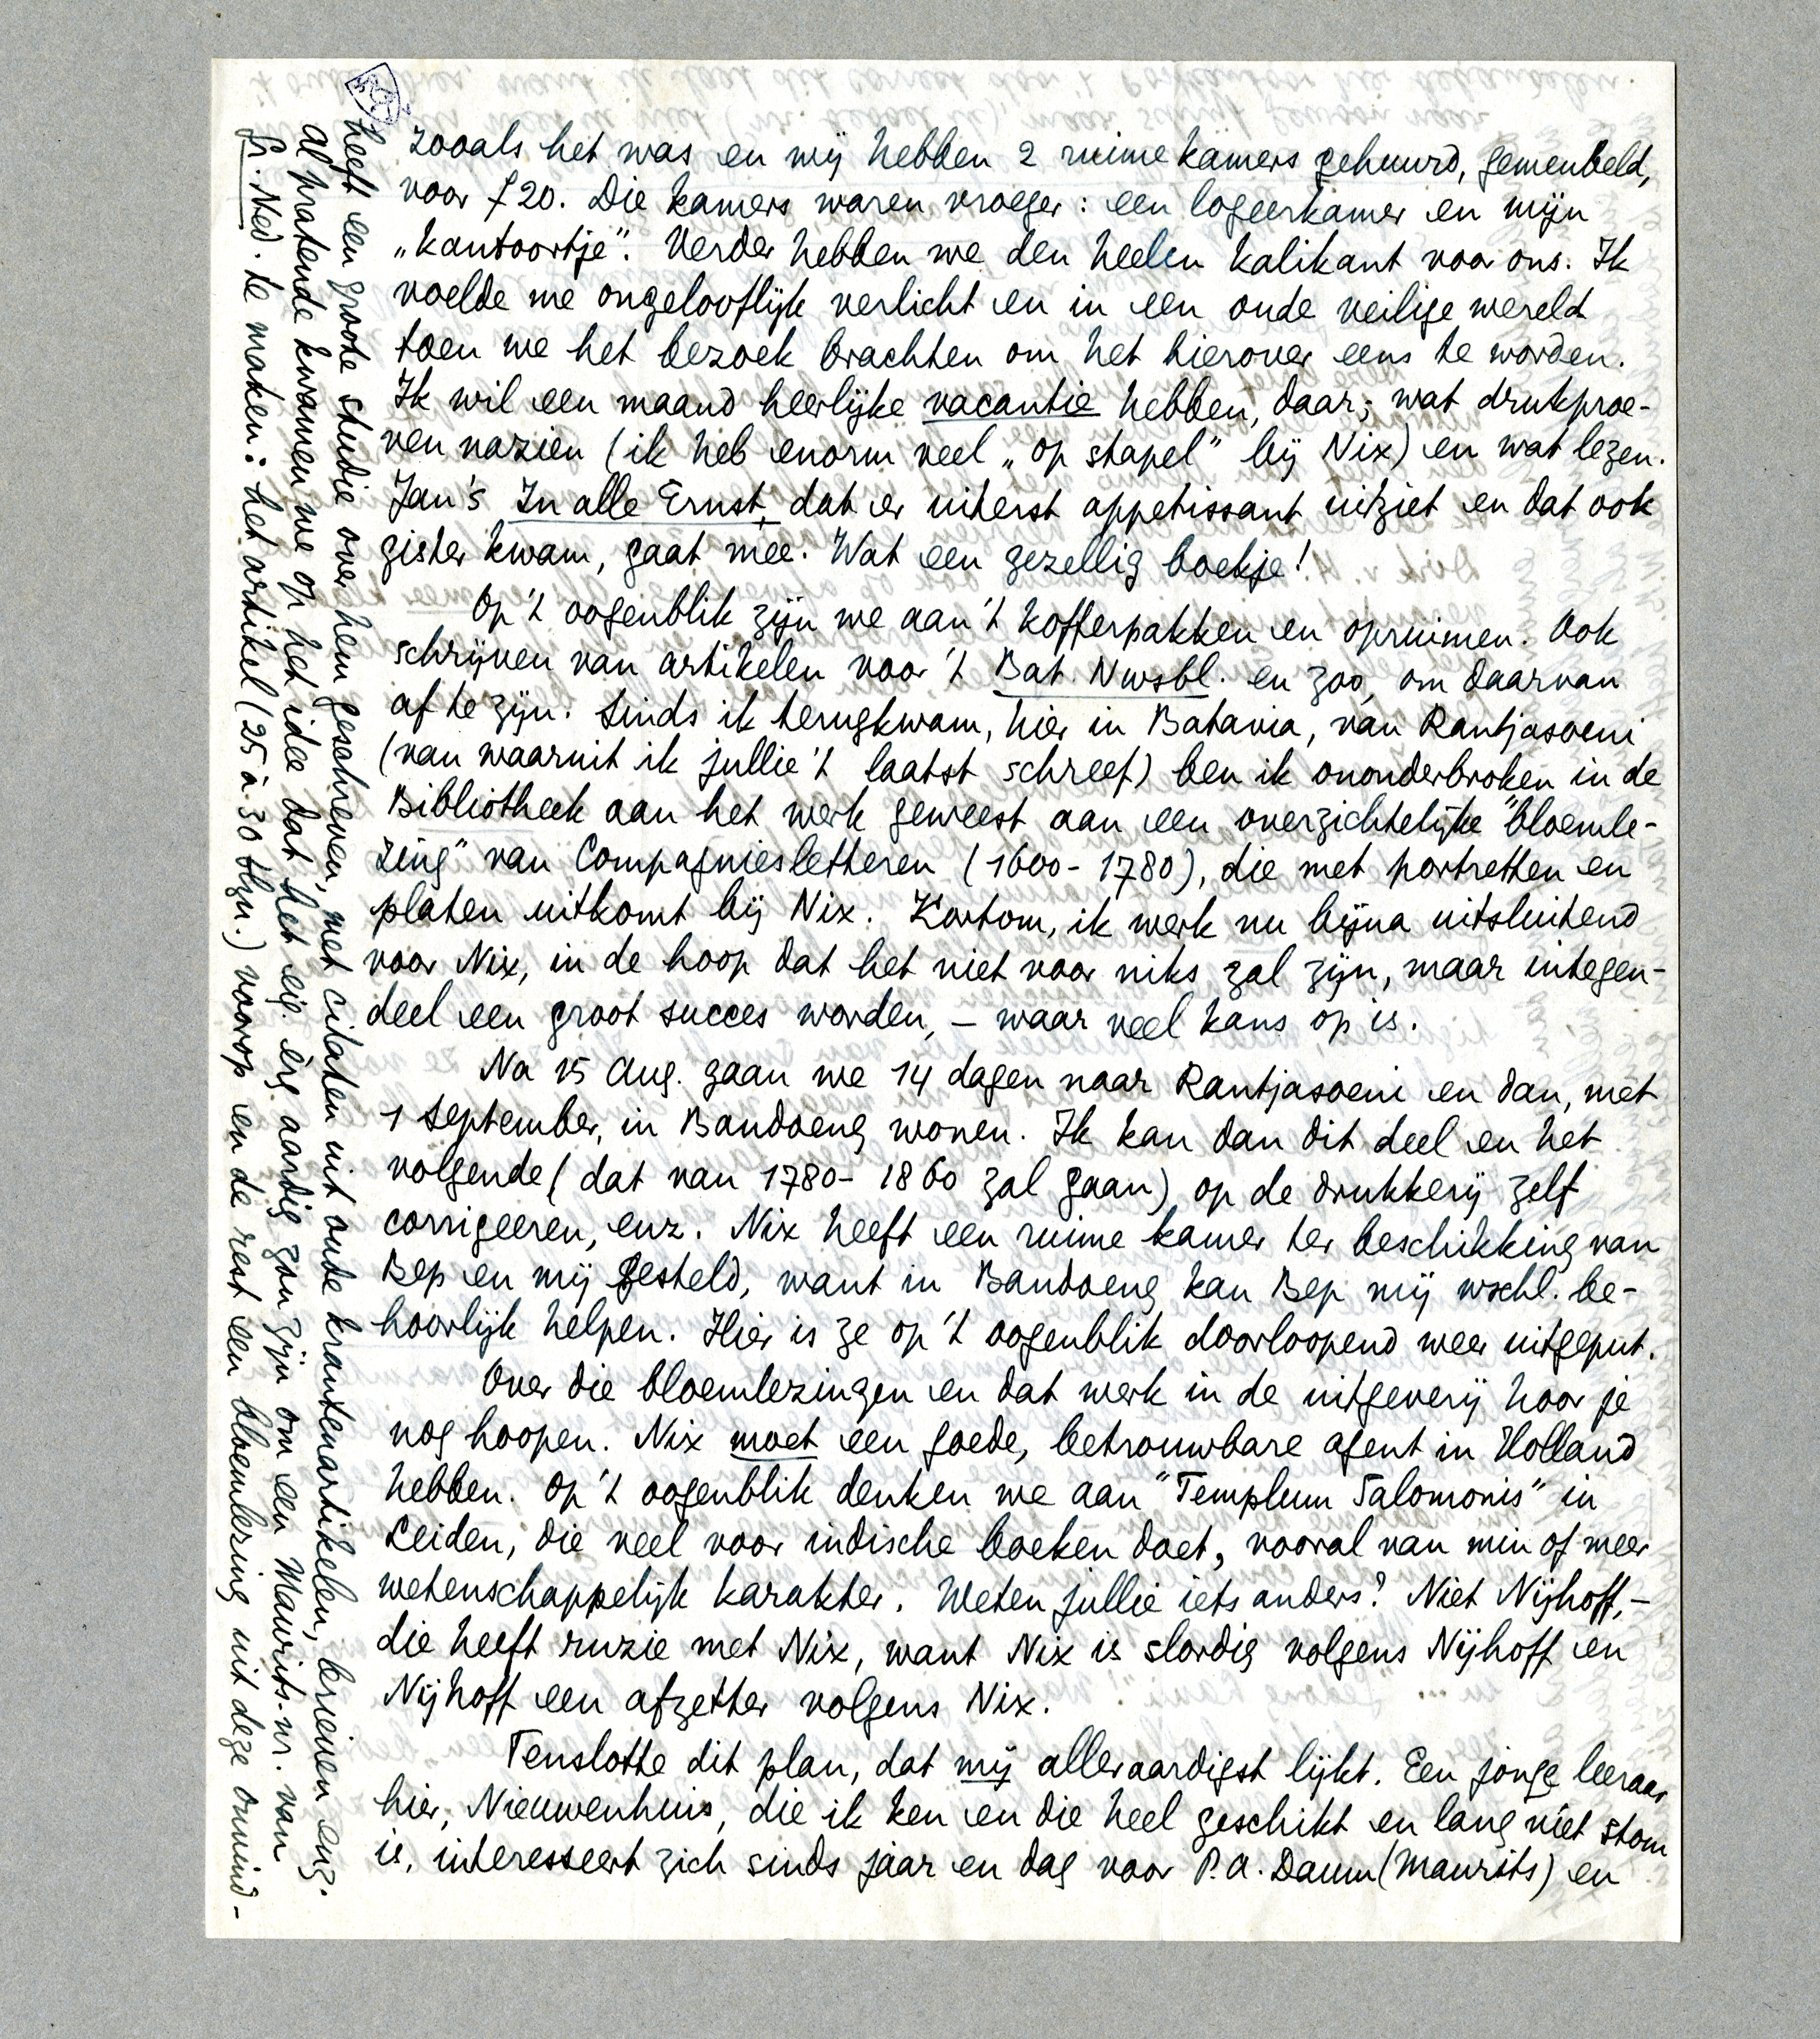 zooals het was en wij hebben 2 ruime kamers gehuurd, gemeubeld,
voor f 20. Die kamers waren vroeger: een logeerkamer en mijn
„kantoortje”. Verder hebben we den heelen kalikant voor ons. Ik
voelde me ongelooflijk verlicht en in een oude veilige wereld
toen we het bezoek brachten om het hierover eens te worden.
Ik wil een maand heerlijke vacantie hebben, daar; wat drukproe-
ven nazien (ik heb enorm veel „op stapel” bij Nix) en wat lezen.
Jan's In alle Ernst, dat er uiterst appetissant uitziet en dat ook
gister kwam, gaat mee. Wat een gezellig boekje!
Op 't oogenblik zijn we aan 't kofferpakken en opruimen. Ook
schrijven van artikelen voor 't Bat. Nwsbl. en zoo, om daarvan
af te zijn. Sinds ik terugkwam, hier in Batavia, van Rantjasoeni
(van waaruit ik jullie 't laatst schreef) ben ik ononderbroken in de
Bibliotheek aan het werk geweest aan een overzichtelijke "bloemle-
zing" van Compagniesletteren (1600-1780), die met portretten en
platen uitkomt bij Nix. Kortom, ik werk nu bijna uitsluitend
voor Nix, in de hoop dat het niet voor niks zal zijn, maar integen-
deel een groot succes worden, – waar veel kans op is.
Na 15 Aug. gaan we 14 dagen naar Rantjasoeni en dan, met
1 September, in Bandoeng wonen. Ik kan dan dit deel en het
volgende (dat van 1780-1860 zal gaan) op de drukkerij zelf
corrigeeren, enz. Nix heeft een ruime kamer ter beschikking van
Bep en mij gesteld, want in Bandoeng kan Bep mij wschl. be-
hoorlijk helpen. Hier is ze op 't oogenblik doorloopend weer uitgeput.
Over die bloemlezingen en dat werk in de uitgeverij hoor je
nog hoopen. Nix moet een goede, betrouwbare agent in Holland
hebben. Op 't oogenblik denken we aan "Templum Salomonis" in
Leiden, die veel voor indische boeken doet, vooral van min of meer
wetenschappelijk karakter. Weten jullie iets anders? Niet Nijhoff, –
die heeft ruzie met Nix, want Nix is slordig volgens Nijhoff en
Nijhoff een afzetter volgens Nix.
Tenslotte dit plan, dat mij alleraardigst lijkt. Een jonge leeraar
hier, Nieuwenhuis, die ik ken en die heel geschikt en lang niet stom
is, interesseert zich sinds jaar en dag voor P.A. Daum (Maurits) en
heeft een groote studie over hem geschreven, met citaten uit oude krantenartikelen, brieven enz.
Al pratende kwamen we op het idee dat het eig. èrg aardig zou zijn om een Maurits-nr. van
Gr. Ned. te maken: het artikel (25 à 30 blzn.) voorop en de rest een bloemlezing uit deze onvind-